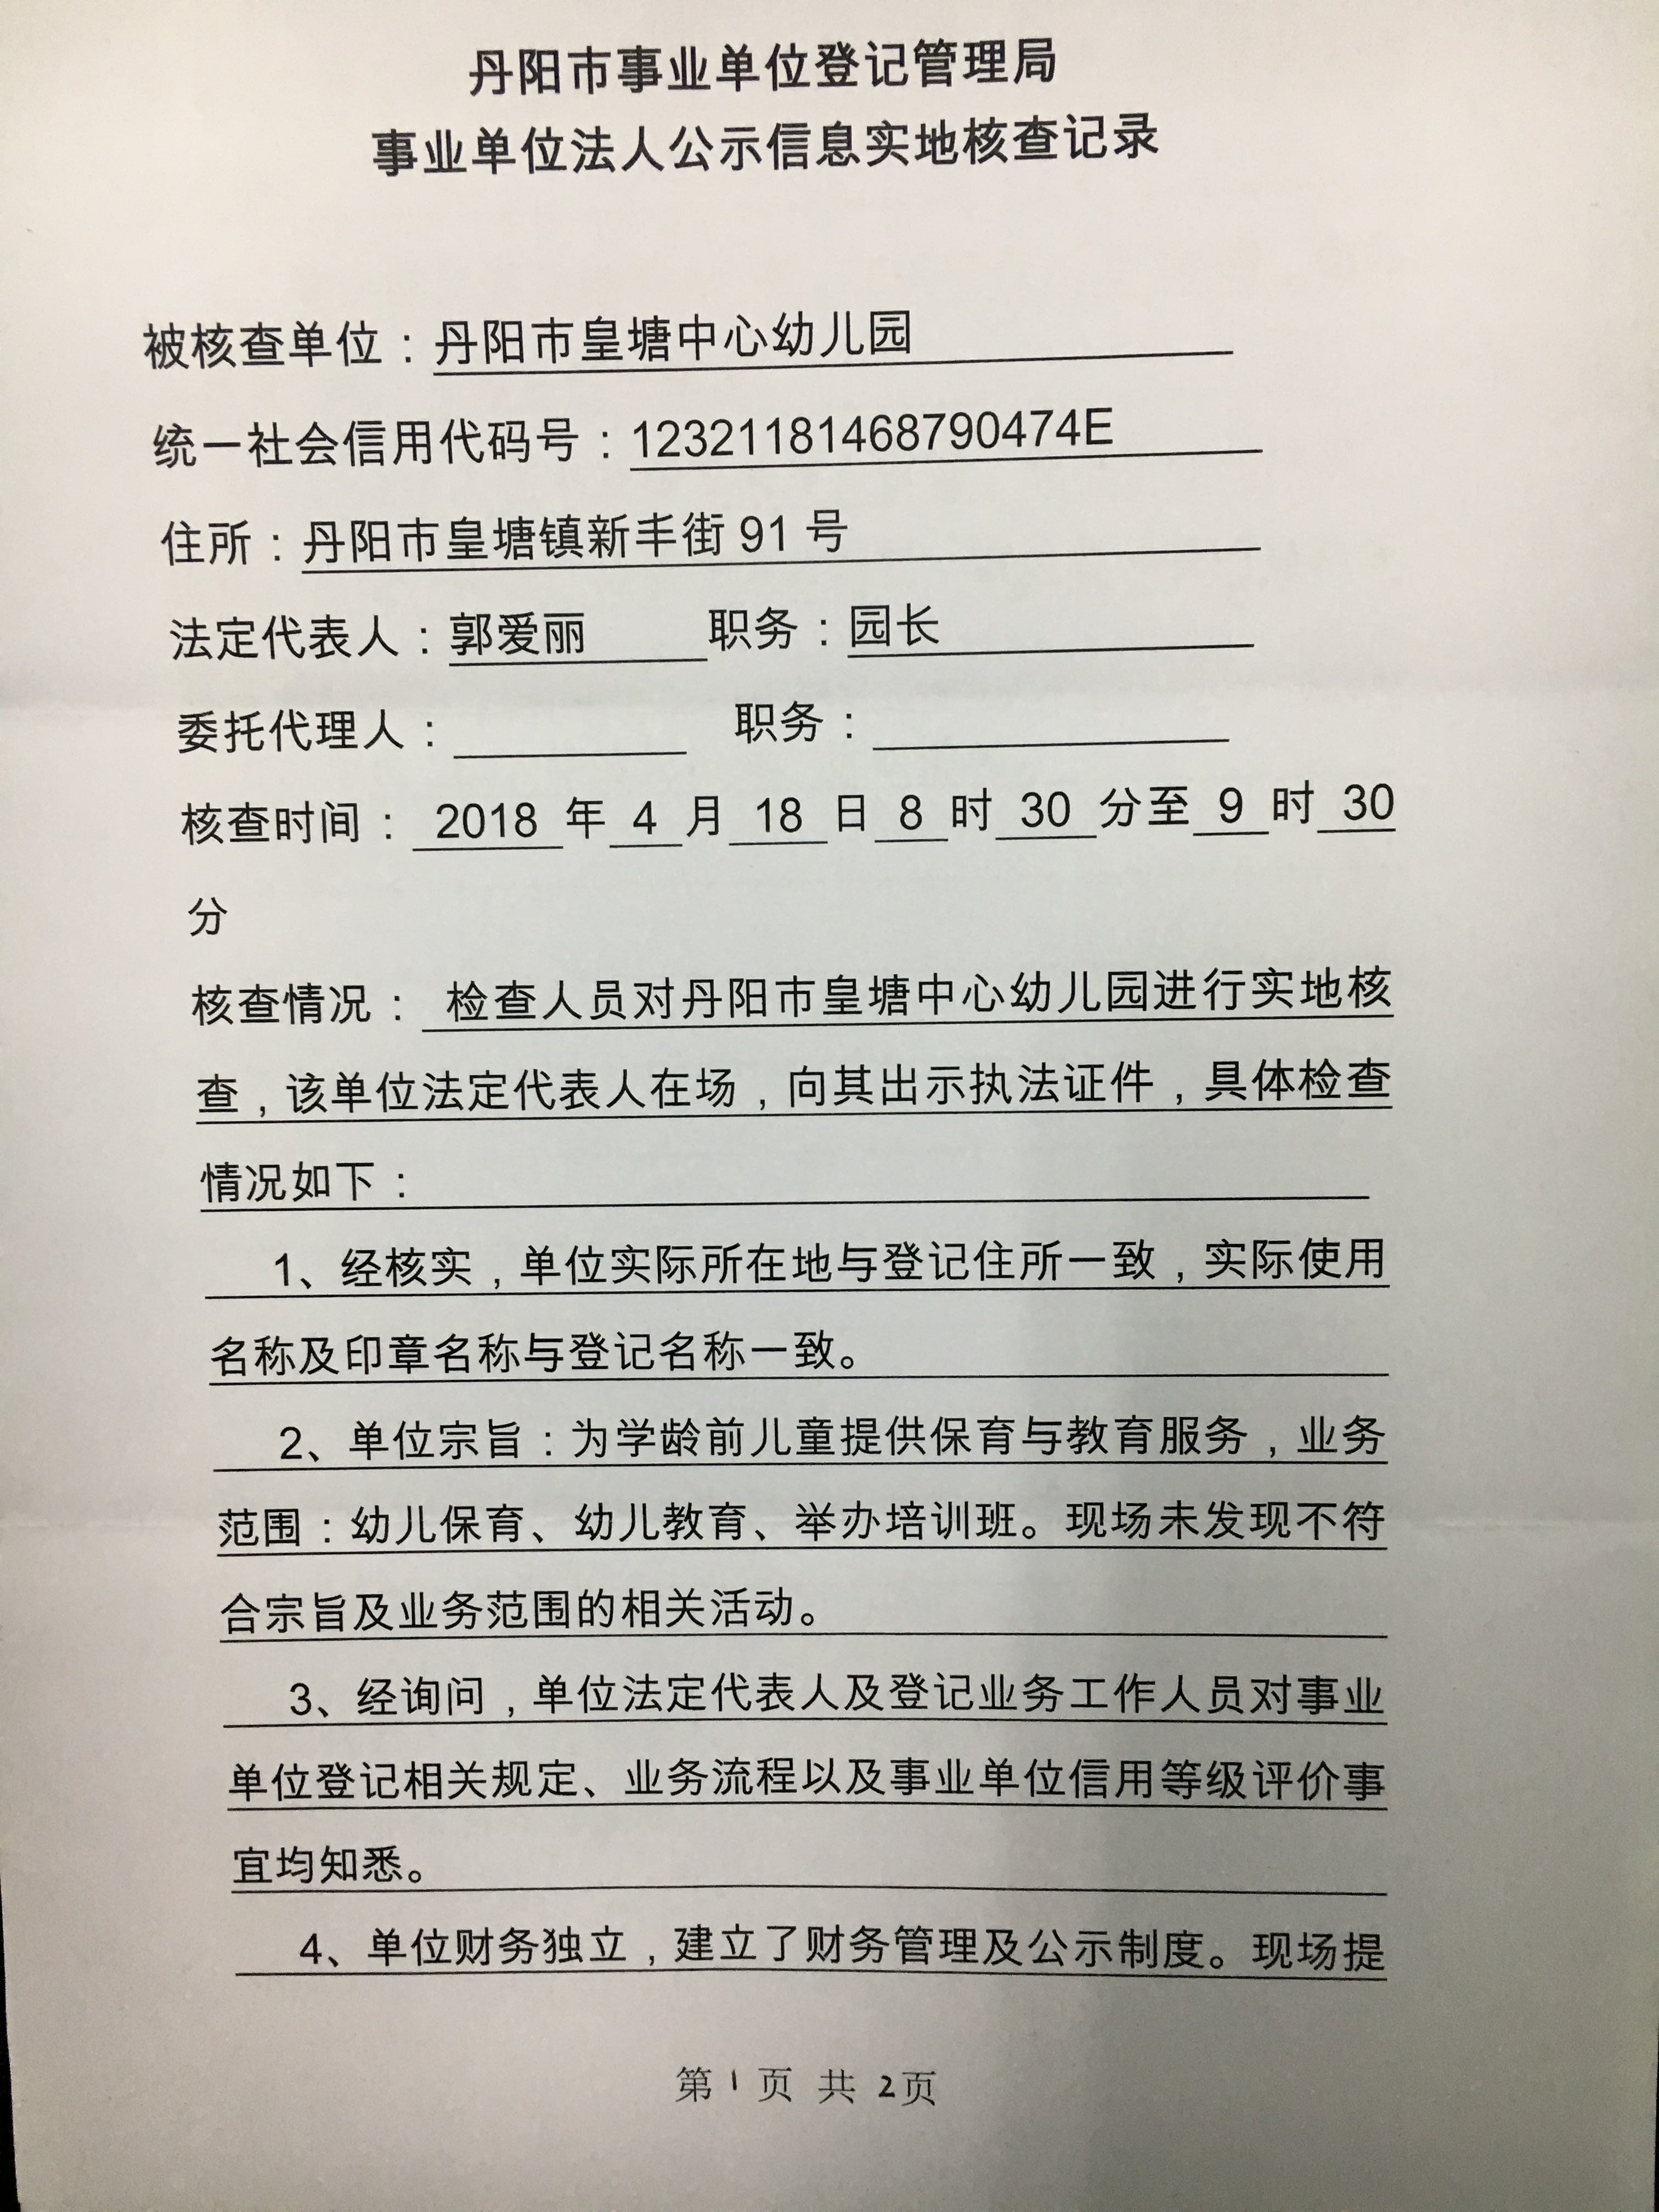 丹阳市事业单位登记管理局
事业单位法人公示信息实地核查记录
被核查单位：丹阳市皇塘中心幼儿园
统一社会信用代码号：12321181468790474E
住所：丹阳市皇塘镇新丰街 91 号
法定代表人：郭爱丽 职务：园长
委托代理人： 职务：
核查时间： 2018 年 4 月 18 日 8 时 30 分至 9 时 30
分
核查情况： 检查人员对丹阳市皇塘中心幼儿园进行实地核
查，该单位法定代表人在场，向其出示执法证件，具体检查
情况如下：
1、经核实，单位实际所在地与登记住所一致，实际使用
名称及印章名称与登记名称一致。
2、单位宗旨：为学龄前儿童提供保育与教育服务，业务
范围：幼儿保育、幼儿教育、举办培训班。现场未发现不符
合宗旨及业务范围的相关活动。
3、经询问，单位法定代表人及登记业务工作人员对事业
单位登记相关规定、业务流程以及事业单位信用等级评价事
宜均知悉。
4、单位财务独立，建立了财务管理及公示制度。现场提
第 1 页 共 2页